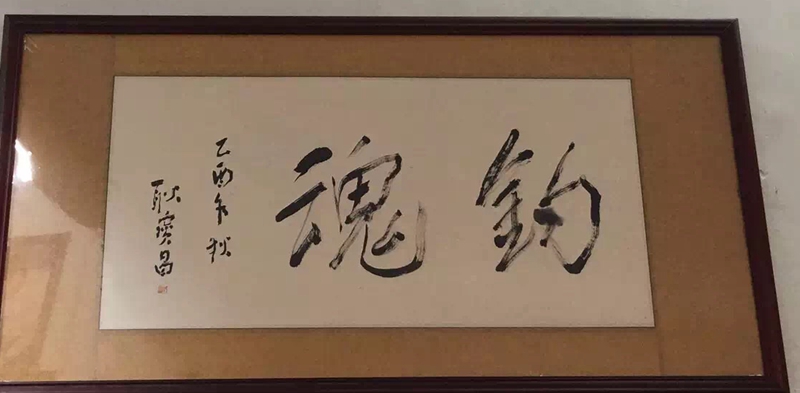 鈞魂
乙酉年秋
耿寶昌